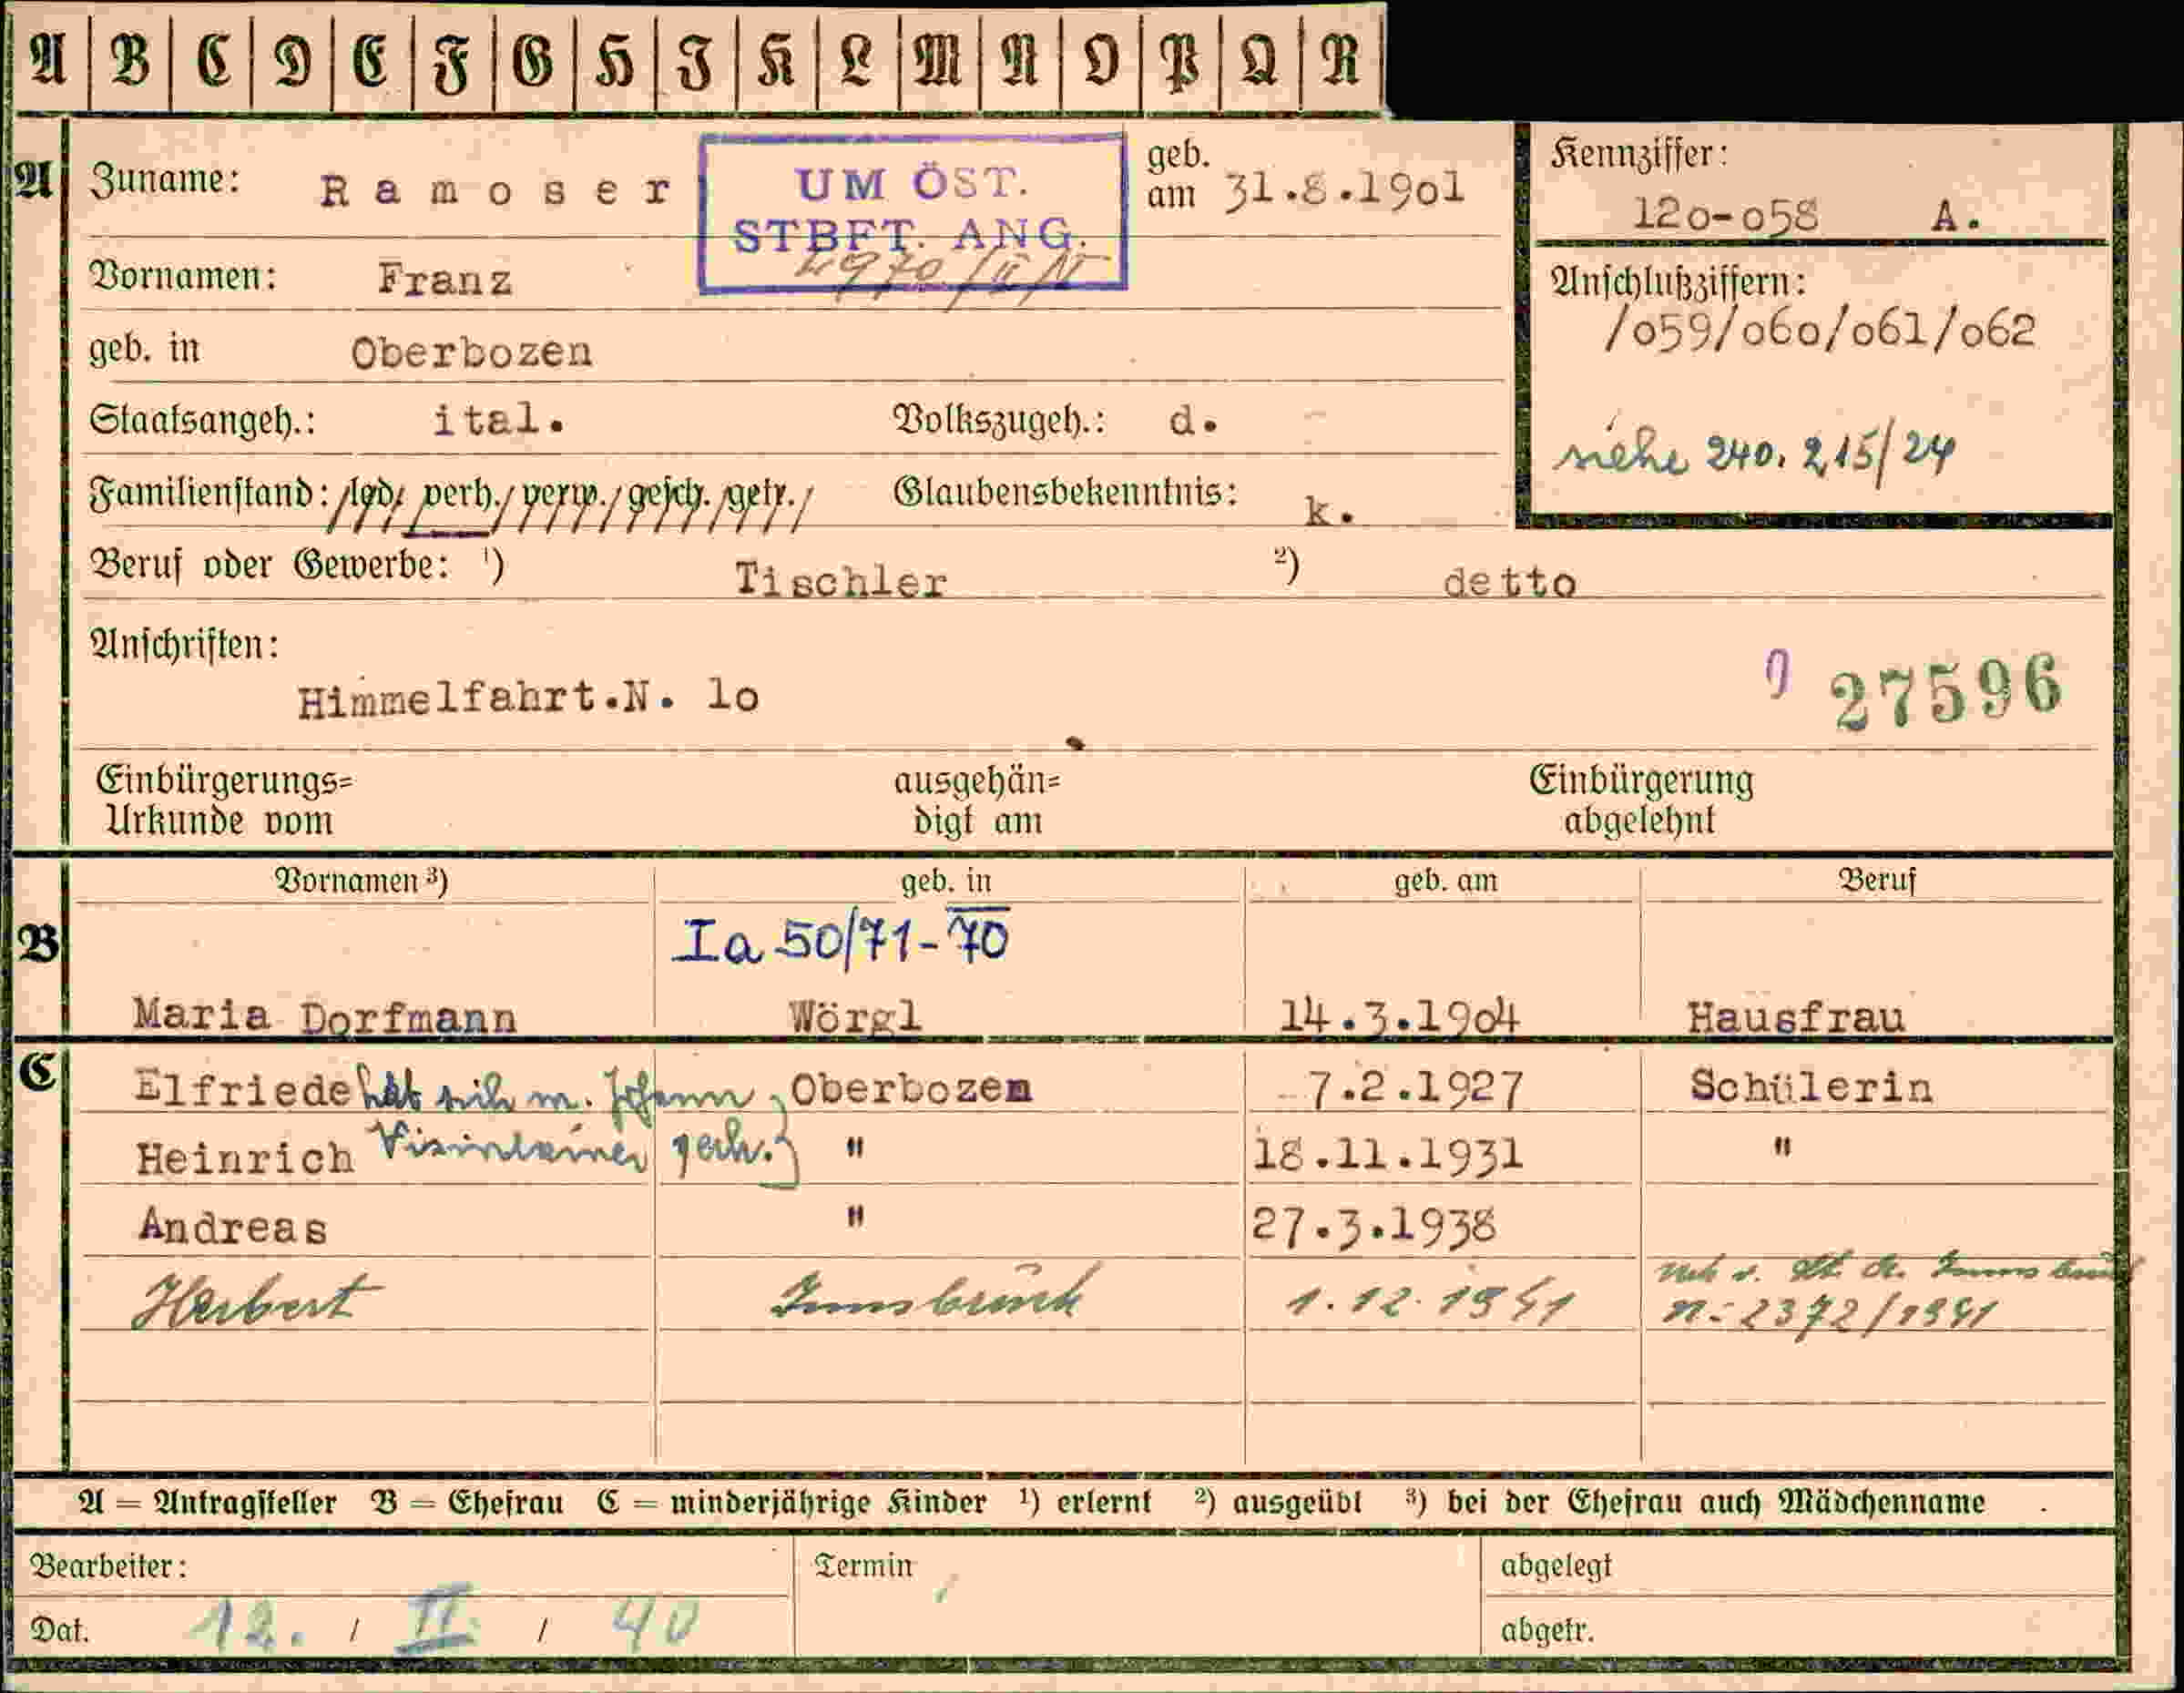 A B C D E F G H I K L M N O P Q R
A Zuname: Ramoser
UM ÖST.
STBFT. ANG.
geb.
am 31.8.19o1
Kennziffer:
12o-o58 A.
Vornamen: Franz
Anschlußziffern:
/o59/o6o/o61/o62
geb. in Oberbozen
Staatsangeh.: ital. Volkszugeh.: d. -
siehe 240.215/24
Familienstand: /led./ verh./ verw./ gesch./getr./ Glaubensbekenntnis: k.
Beruf oder Gewerbe: ¹) Tischler ²) detto
Anschriften:
Himmelfahrt.N. 1o
27596
Einbürgerungs=
Urkunde vom
ausgehän=
digt am
Einbürgerung
abgelehnt
Vornamen ³) geb. in geb. am Beruf
B
Ia 50/71-70
Maria Dorfmann Wörgl 14.3.19o4 Hausfrau
C
Elfriede hat sich m. Johann Oberbozen 7.2.1927 Schülerin
Heinrich verh. " 18.11.1931 "
Andreas " 27.3.1938
Herbert Innsbruck 1.12.1941 Innsbruck
n: 2372/1941
A = Antragsteller B = Ehefrau C = minderjährige Kinder ¹) erlernt ²) ausgeübt ³) bei der Ehefrau auch Mädchenname
Bearbeiter: Termin abgelegt
Dat. 12. / II. / 40 abgetr.